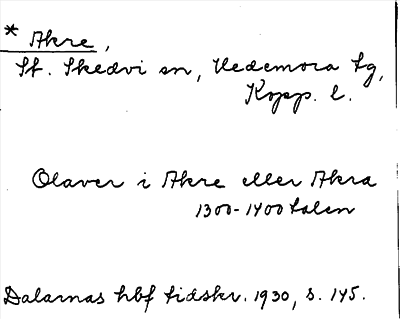 * Akre,
St. Skedvi sn, Hedemora tg,
Kopp. l.
Olaver i Akre eller Akra
1300-1400 talen
Dalarnas hbf tidskr. 1930, s. 145.